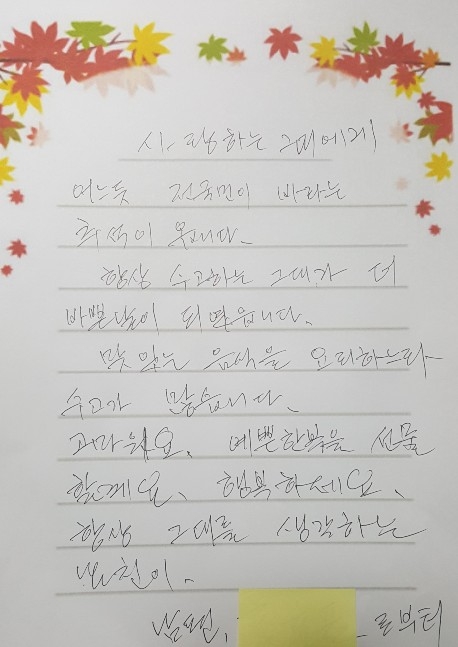 사랑하는 그대에게
어느듯 전국민이 바라는
추석이 옵니다.
항상 수고하는 그대가 더
바쁜날이 되었습니다.
맛있는 음식을 요리하느라
수고가 많습니다.
고마워요. 예쁜한복을 선물
할께요. 행복하세요.
항상 그대를 생각하는
남편, 로부터